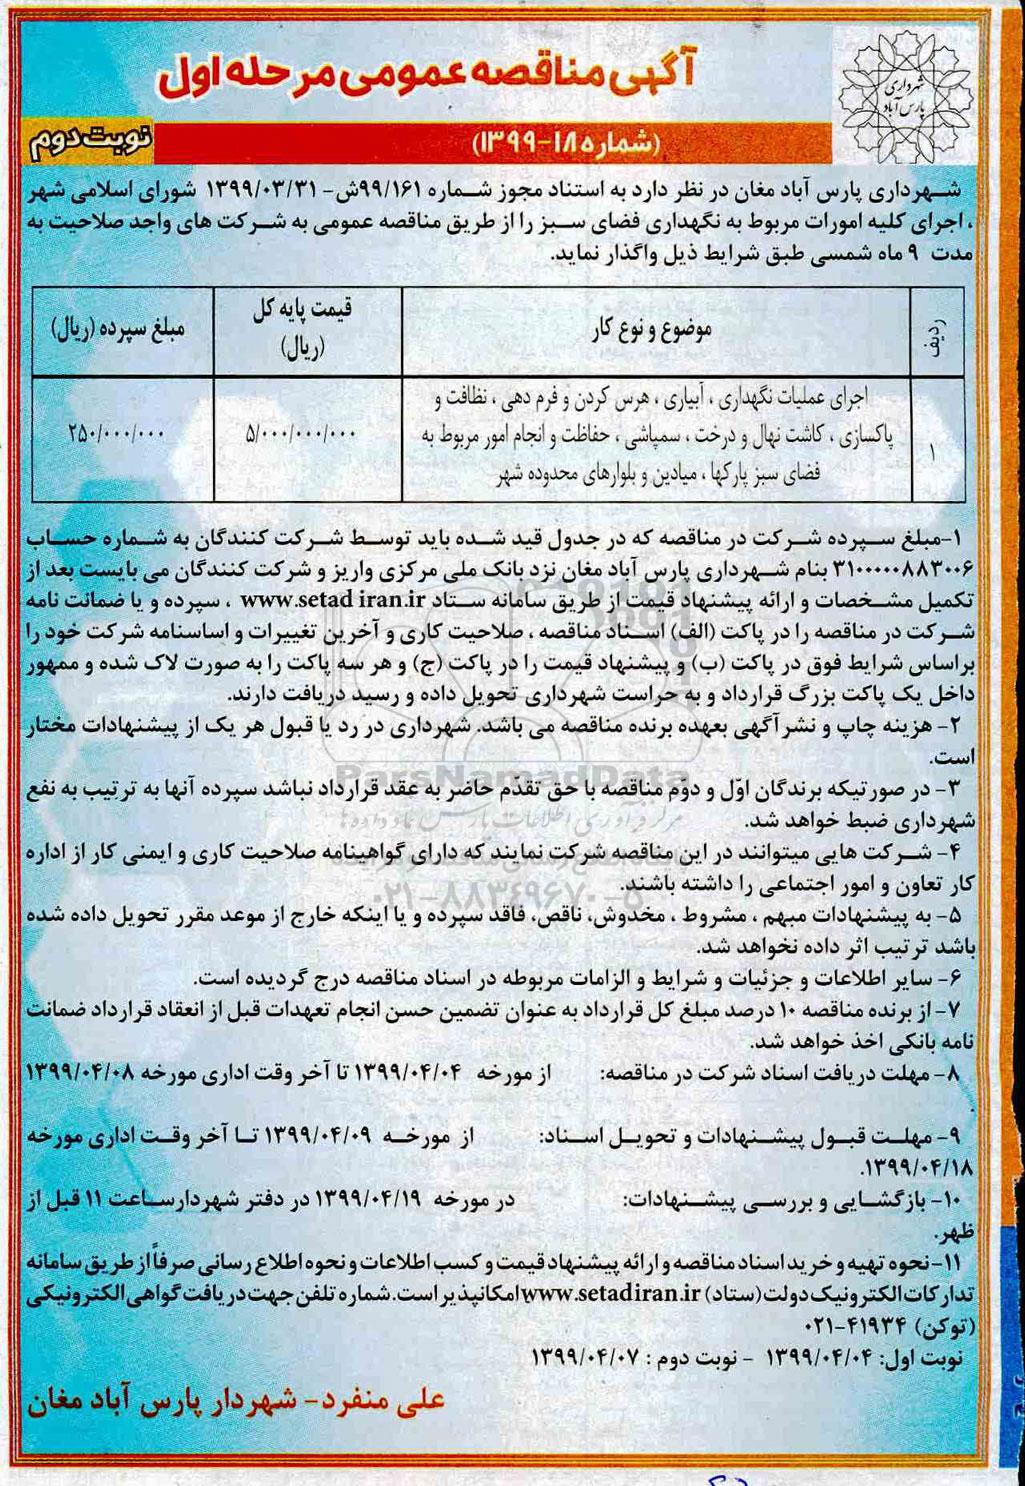 آگهی مناقصه عمومی مرحله اول
شهرداری
پارس آباد
نوبت دوم
(شماره ۱۸-۱۳۹۹)
شهرداری پارس آباد مغان در نظر دارد به استناد مجوز شماره ۹۹/۱۶۱ش- ۱۳۹۹/۰۳/۳۱ شورای اسلامی شهر
، اجرای کلیه امورات مربوط به نگهداری فضای سبز را از طریق مناقصه عمومی به شرکت های واجد صلاحیت به
مدت ۹ ماه شمسی طبق شرایط ذیل واگذار نماید.
ردیف
موضوع و نوع کار
قیمت پایه کل
(ریال)
مبلغ سپرده (ریال)
۱
اجرای عملیات نگهداری ، آبیاری ، هرس کردن و فرم دهی ، نظافت و
پاکسازی ، کاشت نهال و درخت ، سمپاشی ، حفاظت و انجام امور مربوط به
فضای سبز پارکها ، میادین و بلوارهای محدوده شهر
۵/۰۰۰/۰۰۰/۰۰۰
۲۵۰/۰۰۰/۰۰۰
۱-مبلغ سپرده شرکت در مناقصه که در جدول قید شده باید توسط شرکت کنندگان به شماره حساب
۳۱۰۰۰۰۰۸۸۳۰۰۶ بنام شهرداری پارس آباد مغان نزد بانک ملی مرکزی واریز و شرکت کنندگان می بایست بعد از
تکمیل مشخصات و ارائه پیشنهاد قیمت از طریق سامانه ستاد www.setad iran.ir ، سپرده و یا ضمانت نامه
شرکت در مناقصه را در پاکت (الف) اسناد مناقصه ، صلاحیت کاری و آخرین تغییرات و اساسنامه شرکت خود را
براساس شرایط فوق در پاکت (ب) و پیشنهاد قیمت را در پاکت (ج) و هر سه پاکت را به صورت لاک شده و ممهور
داخل یک پاکت بزرگ قرارداد و به حراست شهرداری تحویل داده و رسید دریافت دارند.
۲- هزینه چاپ و نشر آگهی بعهده برنده مناقصه می باشد. شهرداری در رد یا قبول هر یک از پیشنهادات مختار
است.
ParsNamadData
۳- در صورتیکه برندگان اوّل و دوّم مناقصه با حق تقدّم حاضر به عقد قرارداد نباشد سپرده آنها به ترتیب به نفع
شهرداری ضبط خواهد شد.
۴- شرکت هایی میتوانند در این مناقصه شرکت نمایند که دارای گواهینامه صلاحیت کاری و ایمنی کار از اداره
کار تعاون و امور اجتماعی را داشته باشند.
۰۲۱-۸۸۳۴۹۶۷۰-۵
۵- به پیشنهادات مبهم ، مشروط ، مخدوش، ناقص، فاقد سپرده و یا اینکه خارج از موعد مقرر تحویل داده شده
باشد ترتیب اثر داده نخواهد شد.
۶- سایر اطلاعات و جزئیات و شرایط و الزامات مربوطه در اسناد مناقصه درج گردیده است.
۷- از برنده مناقصه ۱۰ درصد مبلغ کل قرارداد به عنوان تضمین حسن انجام تعهدات قبل از انعقاد قرارداد ضمانت
نامه بانکی اخذ خواهد شد.
۸- مهلت دریافت اسناد شرکت در مناقصه: از مورخه ۱۳۹۹/۰۴/۰۴ تا آخر وقت اداری مورخه ۱۳۹۹/۰۴/۰۸
.
۹- مهلت قبول پیشنهادات و تحویل اسناد: از مورخه ۱۳۹۹/۰۴/۰۹ تا آخر وقت اداری مورخه
۱۳۹۹/۰۴/۱۸.
۱۰- بازگشایی و بررسی پیشنهادات: در مورخه ۱۳۹۹/۰۴/۱۹ در دفتر شهردارساعت ۱۱ قبل از
ظهر.
۱۱-نحوه تهیه و خرید اسناد مناقصه و ارائه پیشنهاد قیمت و کسب اطلاعات و نحوه اطلاع رسانی صرفاً از طریق سامانه
تدارکات الکترونیک دولت (ستاد) www.setadiran.ir امکانپذیر است. شماره تلفن جهت دریافت گواهی الکترونیکی
(توکن) ۴۱۹۳۴-۰۲۱
نوبت اول: ۱۳۹۹/۰۴/۰۴ - نوبت دوم : ۱۳۹۹/۰۴/۰۷
علی منفرد- شهردار پارس آباد مغان